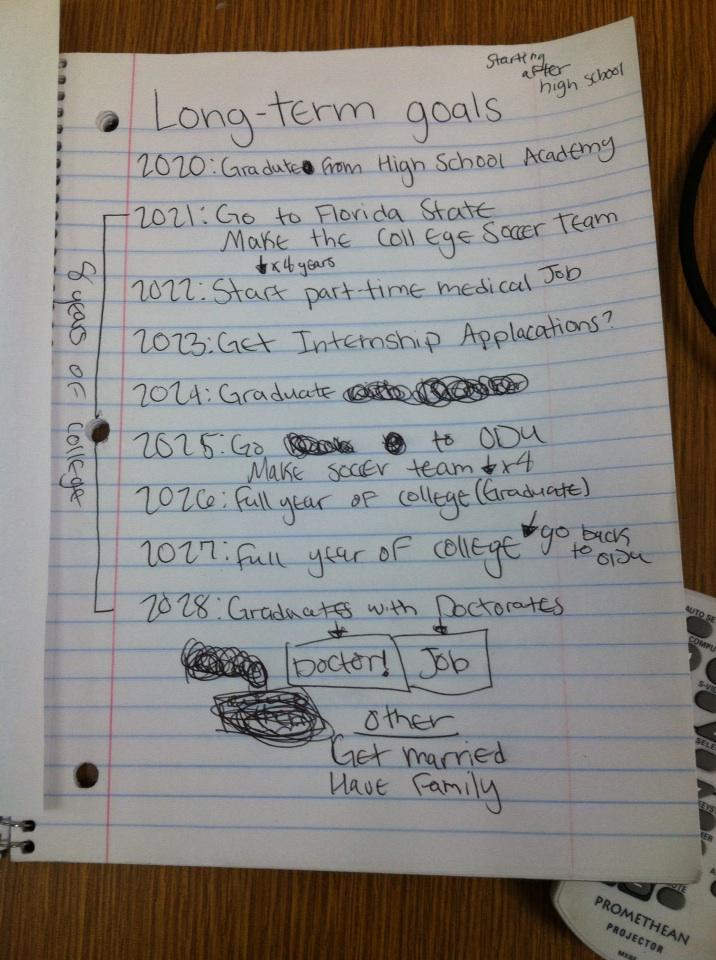 Starting
after
high school
Long-term goals
2020: Graduate from High School Academy
2021: Go to Florida State
Make the College Soccer Team
↓x4 years
2022: Start part-time medical Job
2023: Get Internship Applacations?
2024: Graduate
2025: Go to ODU
Make soccer team ↓x4
2026: Full year of college (Graduate)
2027: Full year of college ↓go back
to ODU
2028: Graduates with Doctorates
Doctor! Job
Other
Get married
Have Family
8 years of college
AUTO SE
COMPU
S-VI
SELE
KEYS
PROMETHEAN
PROJECTOR